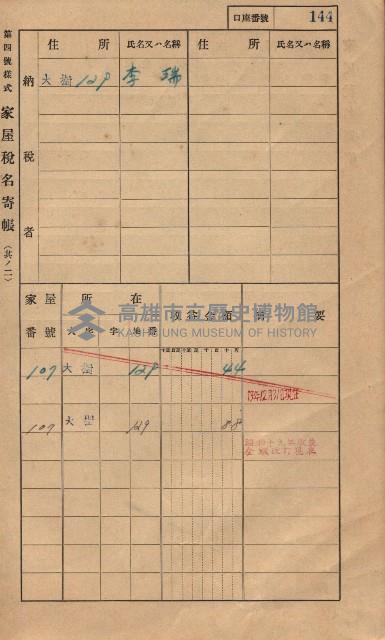 口座番號 144
第四號樣式 家屋稅名寄帳 (其ノ二)
住所 氏名又ハ名稱 住所 氏名又ハ名稱
納稅者
大樹 129 李瑞
家屋番號 所在 賦課金額 摘要
大字 字 地番
高雄市立歷史博物館
KAOHSIUNG MUSEUM OF HISTORY
107 大樹 129 44
107 大樹 129 88
昭和十九年